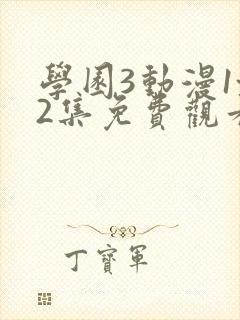 學園3動漫1
2集免費觀看
丁寶軍